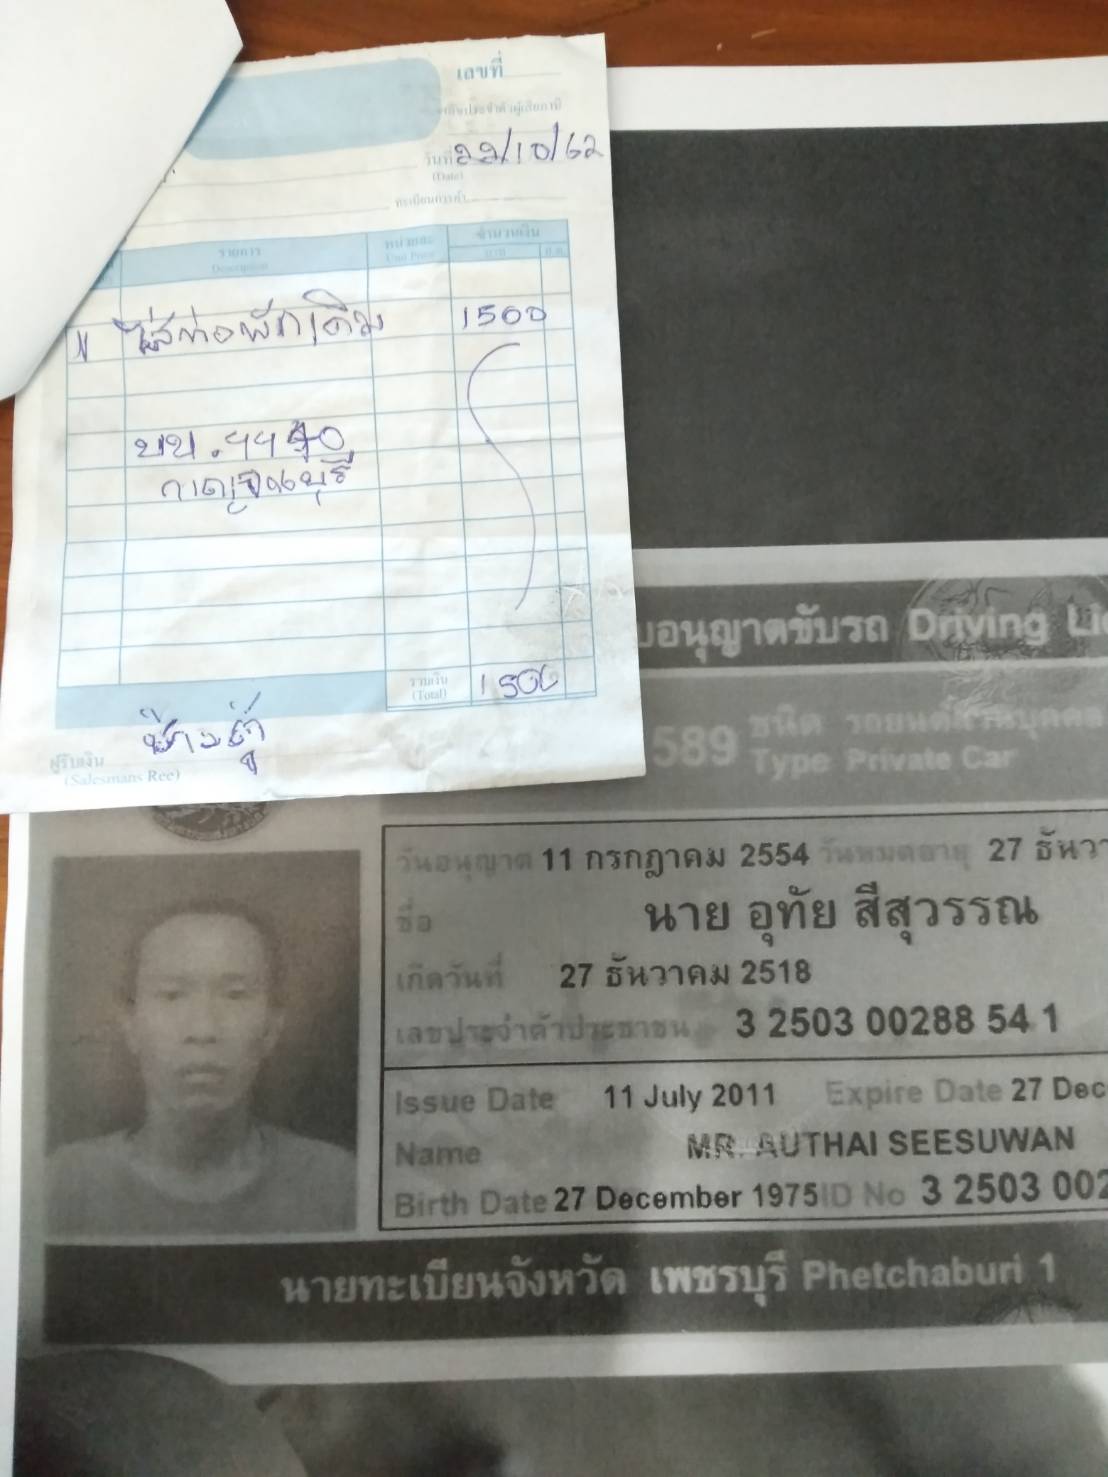 เลขที่
วันที่ 22/10/62
(Date)
ทะเบียนการค้า
รายการ
Description
หน่วยละ
Unit Price
จำนวนเงิน
บาท
ใส่ท่อพักเดิม 1500
บบ.
กาญจนบุรี
รวมเงิน
(Total)
1500
ผู้รับเงิน
(Salesmans Ree)
บอนุญาตขับรถ Driving Lic
589 ชนิด รถยนต์ส่วนบุคคล
Type Private Car
วันอนุญาต 11 กรกฎาคม 2554 วันหมดอายุ 27 ธันวา
ชื่อ นาย อุทัย สีสุวรรณ
เกิดวันที่ 27 ธันวาคม 2518
เลขประจำตัวประชาชน 3 2503 00288 54 1
Issue Date 11 July 2011 Expire Date 27 Dec
Name MR. AUTHAI SEESUWAN
Birth Date 27 December 1975 ID No 3 2503 002
นายทะเบียนจังหวัด เพชรบุรี Phetchaburi 1